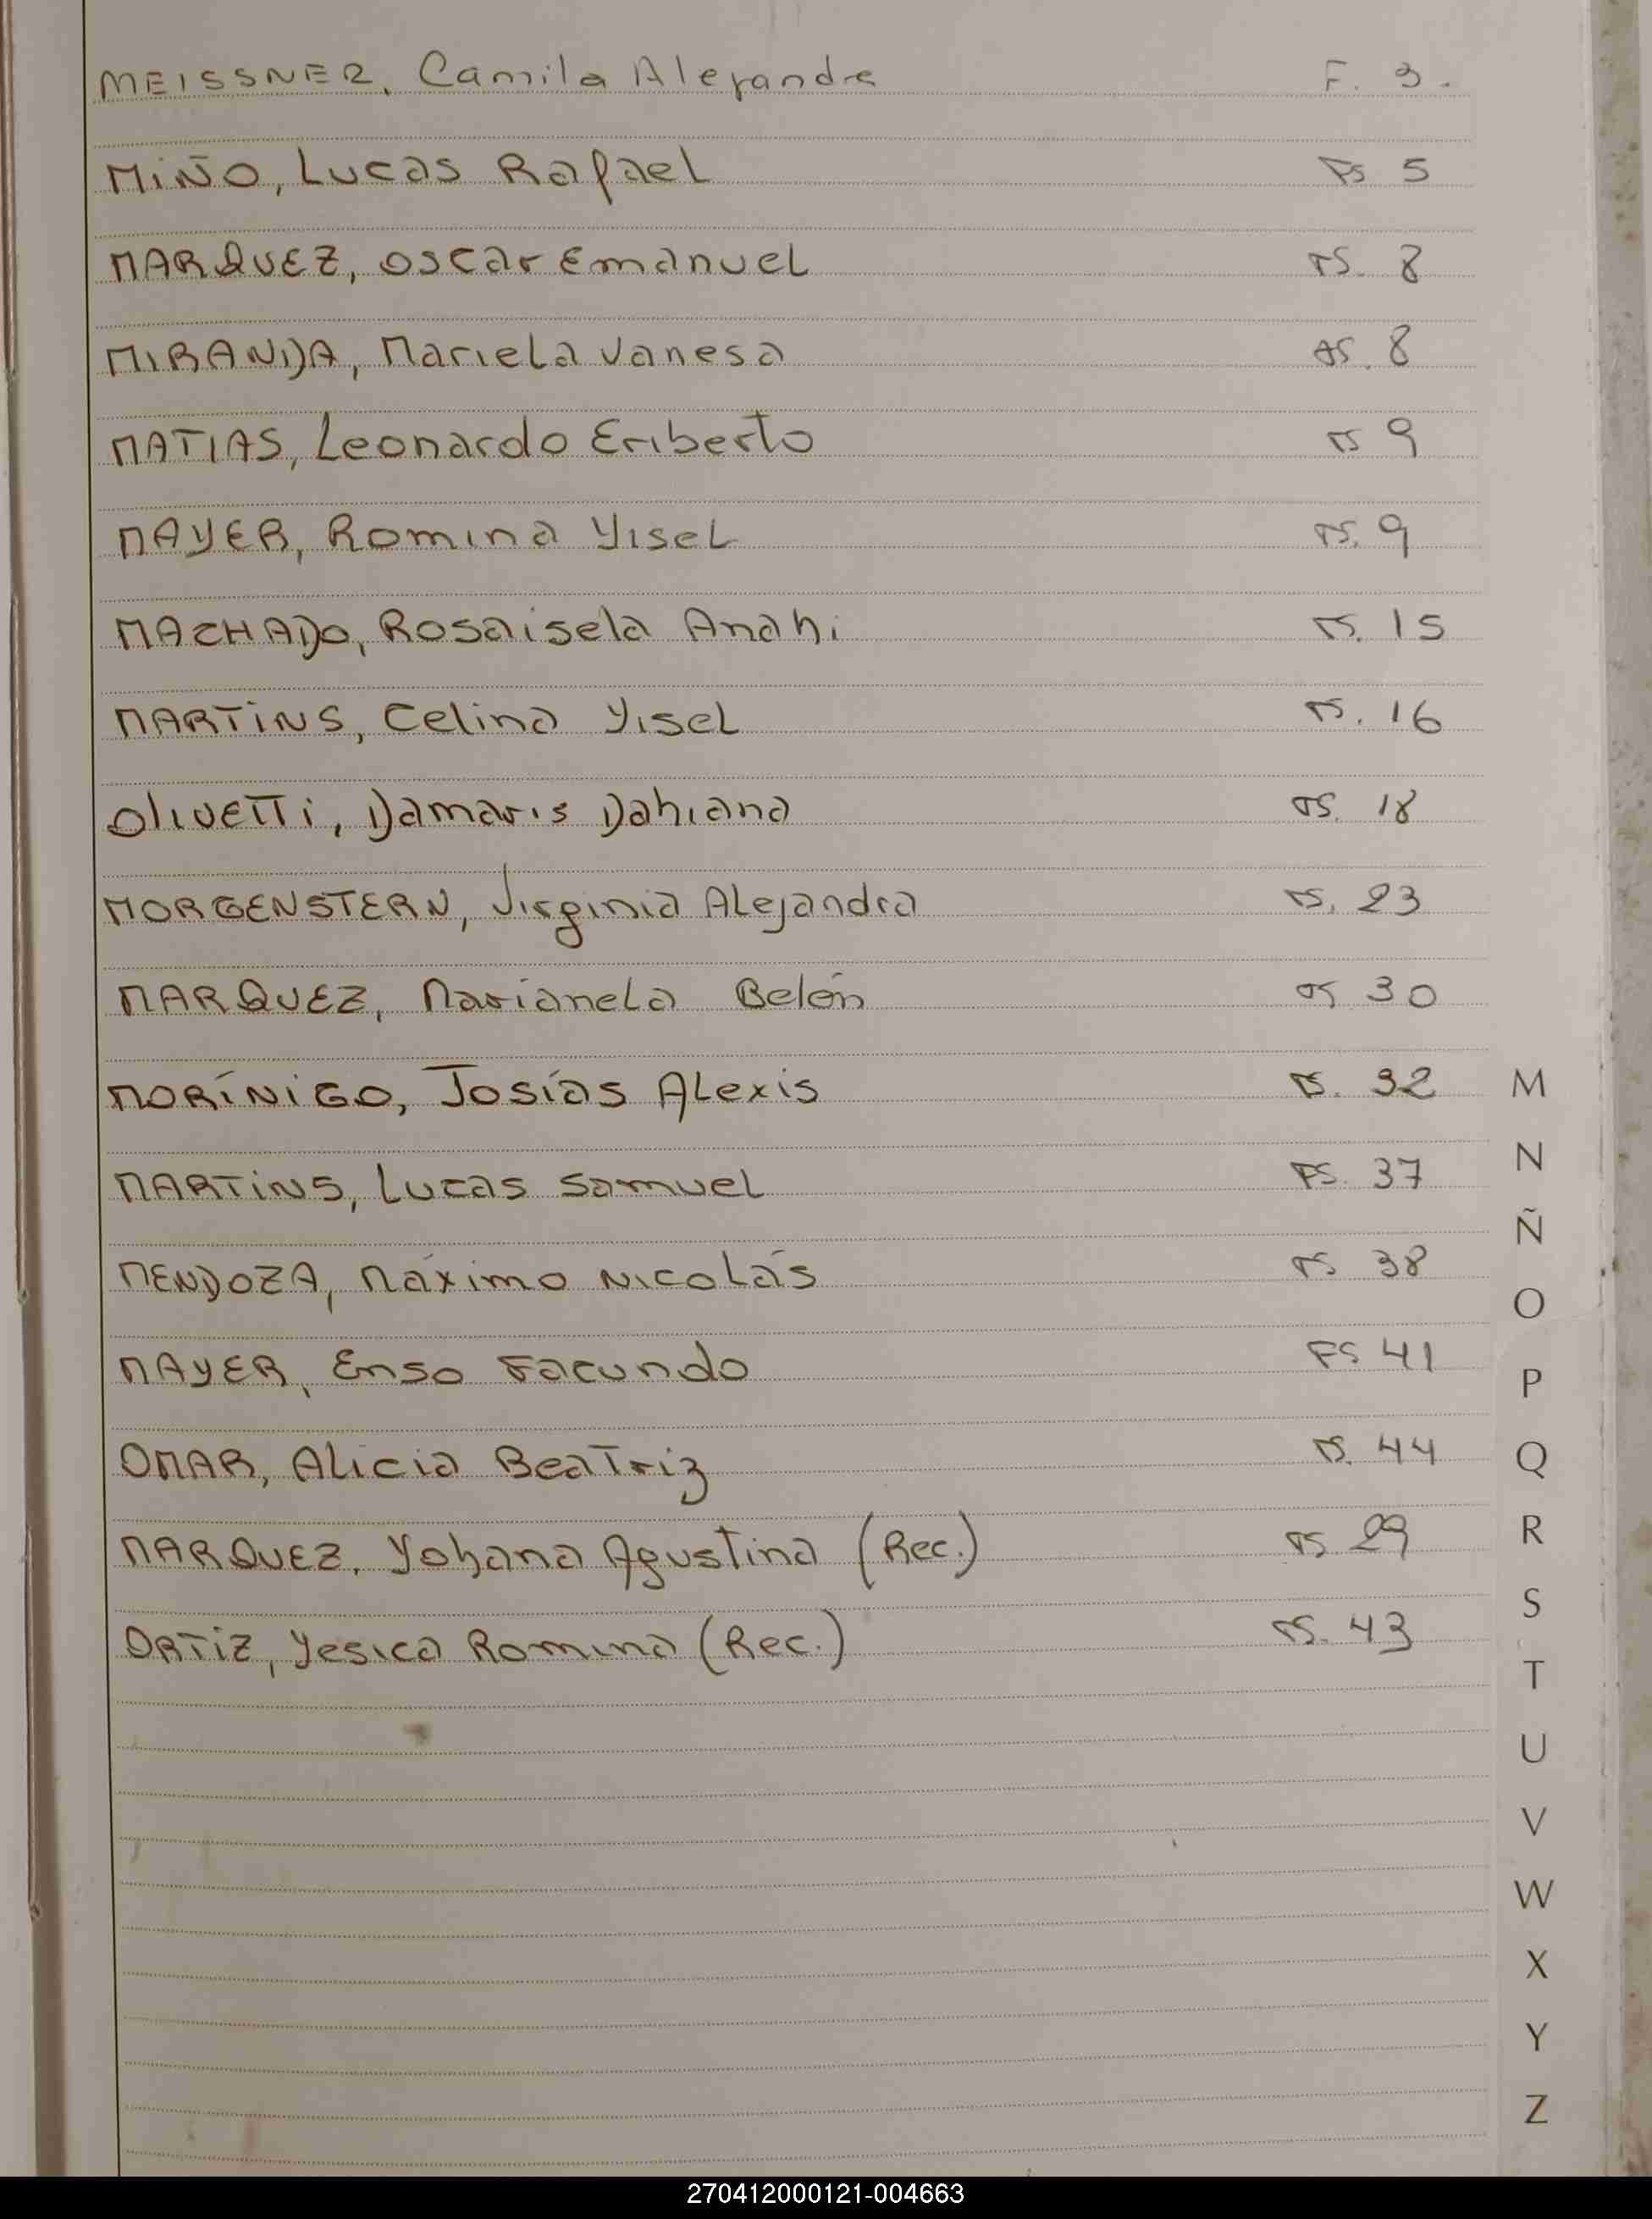 MEISSNER, Camila Alejandra F. 3.
MiÑO, Lucas Rafael Fs 5
MARQUEZ, Oscar Emanuel FS. 8
MIRANDA, Mariela Vanesa FS. 8
MATIAS, Leonardo Eriberto FS 9
MAYER, Romina Yisel FS. 9
MACHADO, Rosaisela Anahi FS. 15
MARTiNS, Celina Yisel FS. 16
OlivETTi, Damaris Dahiana FS. 18
MORGENSTERN, Virginia Alejandra FS. 23
MARQUEZ, Marianela Belén FS 30
MORÍNiGO, Josías Alexis FS. 32
MARTiNS, Lucas Samuel FS. 37
MENDOZA, Máximo Nicolás FS 38
MAYER, Enso Facundo FS 41
OMAR, Alicia Beatriz FS. 44
MARQUEZ, Yohana Agustina (Rec.) FS 29
ORTiZ, Yesica Romina (Rec.) FS. 43
M
N
Ñ
O
P
Q
R
S
T
U
V
W
X
Y
Z
270412000121-004663